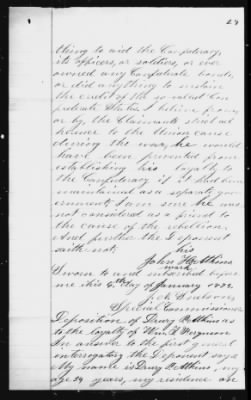 thing to aid the Confederacy,
its officers, or soldiers, or ever
owned any Confederate bonds,
or did anything to sustain
the credit of the so-called Con
federate States. I believe from
or by the Claimants strict ad
herence to the Union cause
during the war, he would
have been prevented from
establishing his loyalty to
the Confederacy if it had
maintained as a separate gov
ernment. I am sure he was
not considered as a friend to
the cause of the rebellion.
And further the deponent
saith not.
his
John Atkins
mark
Sworn to and subscribed before
me this 6th day of January
Special Commissioner
Deposition of Drury Atkins as
to the loyalty of Wm Ferguson
In answer to the first general
interrogatory the Deponent says
My name is Drury Atkins, my
age years, my residence on